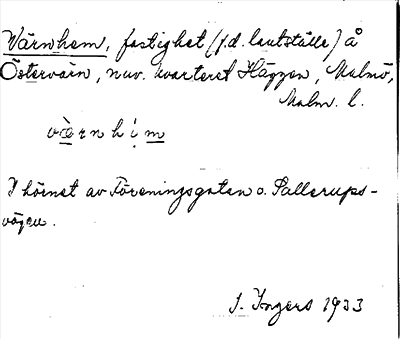 Värnhem, fastighet (f.d. lantställe) å
Östervärn, nuv. kvarteret Häggen, Malmö,
Malm. l.
værnhim
I hörnet av Föreningsgatan o. Sallerups-
vägen.
I. Ingers 1933